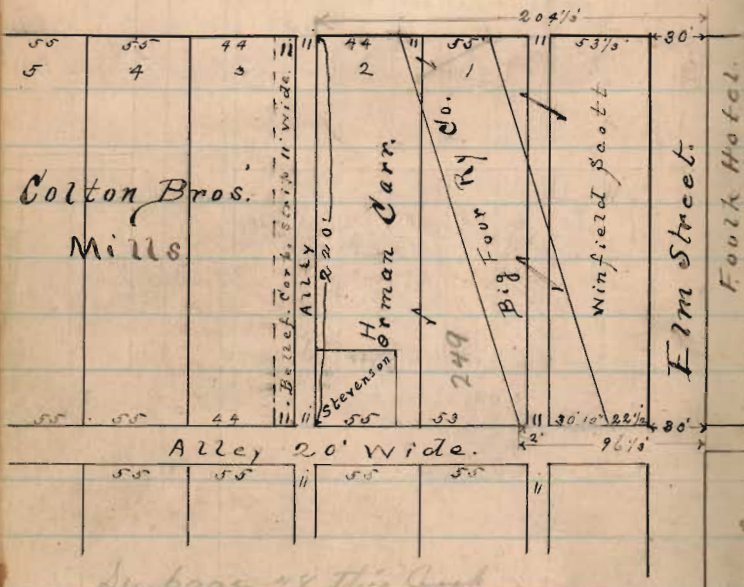 204⅓
55 55 44 11 11 44 11 55 11 53⅓ 30'
5 4 3 2 1
Colton Bros.
Mills
Bellef. Corp. Strip 11' wide.
Alley
220'
Horman Carr.
Stevenson
249
Big Four Ry Co.
Winfield Scott
Elm Street.
Fourth Hotel.
55 55 44 11 11 55 53 11 30' 10" 22½ 30'
Alley 20' Wide.
2' 96⅓
55 55 11 55 55 11
page 28 this book